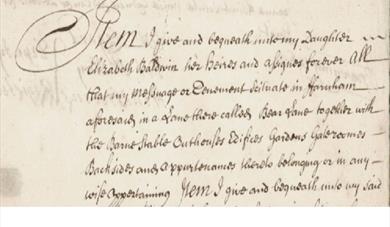 Item I give and bequeath unto my Daughter
Elizabeth Baldwin her Heires and assignes forever All
that my Message or Tenement Scituate in Farnham
aforesaid in a Lane there called Bear Lane together with
the Barne Stable Outhouses Edifices Gardens Gateroomes
Backsides and Appurtenances thereto belonging or in any
wise Appertaining Item I give and bequeath unto my said